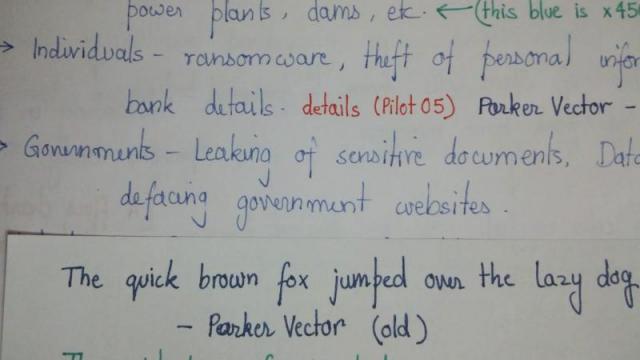 power plants, dams, etc. ← (this blue is x450
→ Individuals - ransomware, theft of personal infor
bank details. details (Pilot 05) Parker Vector -
→ Governments - Leaking of sensitive documents, Data
defacing government websites.
The quick brown fox jumped over the lazy dog
- Parker Vector (old)